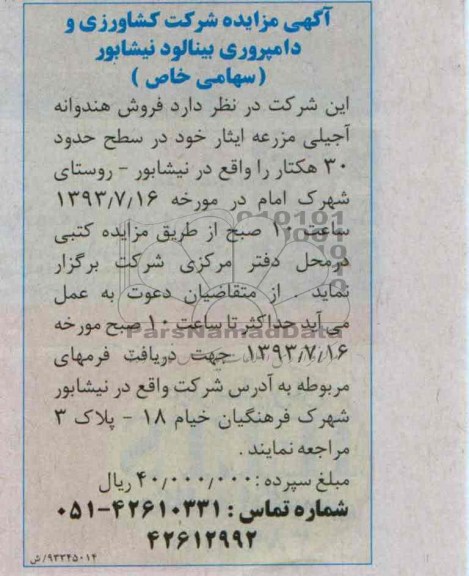 آگهی مزایده شرکت کشاورزی و
دامپروری بینالود نیشابور
(سهامی خاص)
این شرکت در نظر دارد فروش هندوانه
آجیلی مزرعه ایثار خود در سطح حدود
۳۰ هکتار را واقع در نیشابور - روستای
شهرک امام در مورخه ۱۳۹۳٫۷٫۱۶
ساعت ۱۰ صبح از طریق مزایده کتبی
درمحل دفتر مرکزی شرکت برگزار
نماید . از متقاضیان دعوت به عمل
می آید حداکثر تا ساعت ۱۰ صبح مورخه
ParsNamadData
۱۳۹۳٫۷٫۱۶ جهت دریافت فرمهای
مربوطه به آدرس شرکت واقع در نیشابور
شهرک فرهنگیان خیام ۱۸ - پلاک ۳
مراجعه نمایند .
مبلغ سپرده : ۴۰٫۰۰۰٫۰۰۰ ریال
شماره تماس : ۴۲۶۱۰۳۳۱-۰۵۱
۴۲۶۱۲۹۹۲
۹۳۳۴۵۰۱۴/ش